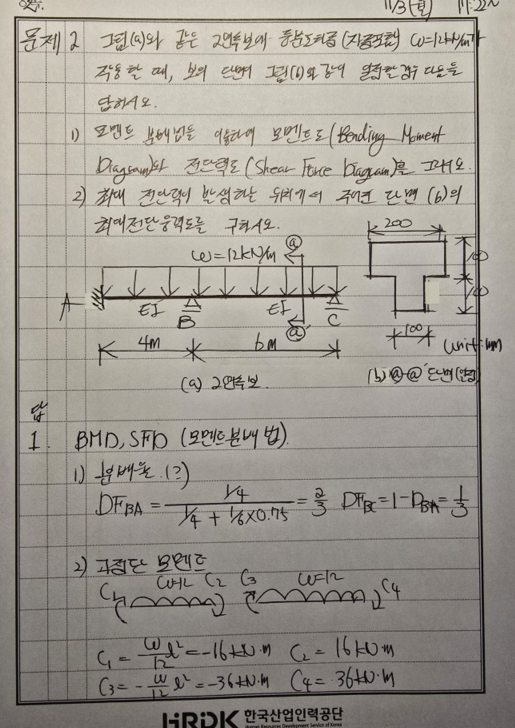 11/3(월) 11:22~
문제 2 그림(a)와 같은 2연속보에 등분포하중(자중포함) ω=12kN/m가
작용할 때, 보의 단면 그림(b)와 같이 일정할 경우 다음을
답하시오.
1) 모멘트 분배법을 이용하여 모멘트도(Bending Moment
Diagram)와 전단력도(Shear Force Diagram)를 그리시오.
2) 최대 전단력이 발생하는 위치에서 주어진 단면(b)의
최대전단응력도를 구하시오.
ω=12kN/m ⓐ 200
A EI B EI C 100
ⓐ' 100
4m 6m 100 unit:mm
(a) 2연속보. (b) ⓐ-ⓐ' 단면
답
1. BMD, SFD (모멘트분배법)
1) 분배율.(?)
DF_BA = (1/4) / (1/4 + 1/6×0.75) = 2/3 DF_BC = 1-D_BA = 1/3
2) 고정단 모멘트
C1 ω=12 C2 C3 ω=12 C4
C1 = ω/12 l² = -16kN·m C2 = 16kN·m
C3 = -ω/12 l² = -36kN·m C4 = 36kN·m
HRDK 한국산업인력공단
Human Resources Development Service of Korea